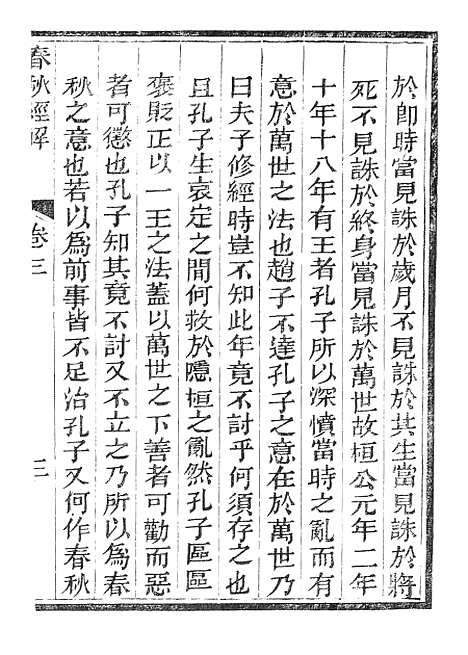 於卽時當見誅於歲月不見誅於其生當見誅於將
死不見誅於終身當見誅於萬世故桓公元年二年
十年十八年有王者孔子所以深憤當時之亂而有
意於萬世之法也趙子不達孔子之意在於萬世乃
曰夫子修經時豈不知此年竟不討乎何須存之也
且孔子生哀定之間何救於隱桓之亂然孔子區區
褒貶正以一王之法蓋以萬世之下善者可勸而惡
者可懲也孔子知其竟不討又不立之乃所以爲春
秋之意也若以爲前事皆不足治孔子又何作春秋
春秋經解
卷三
三